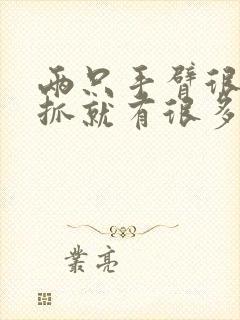 两只手臂很
抓就有很多
業亮